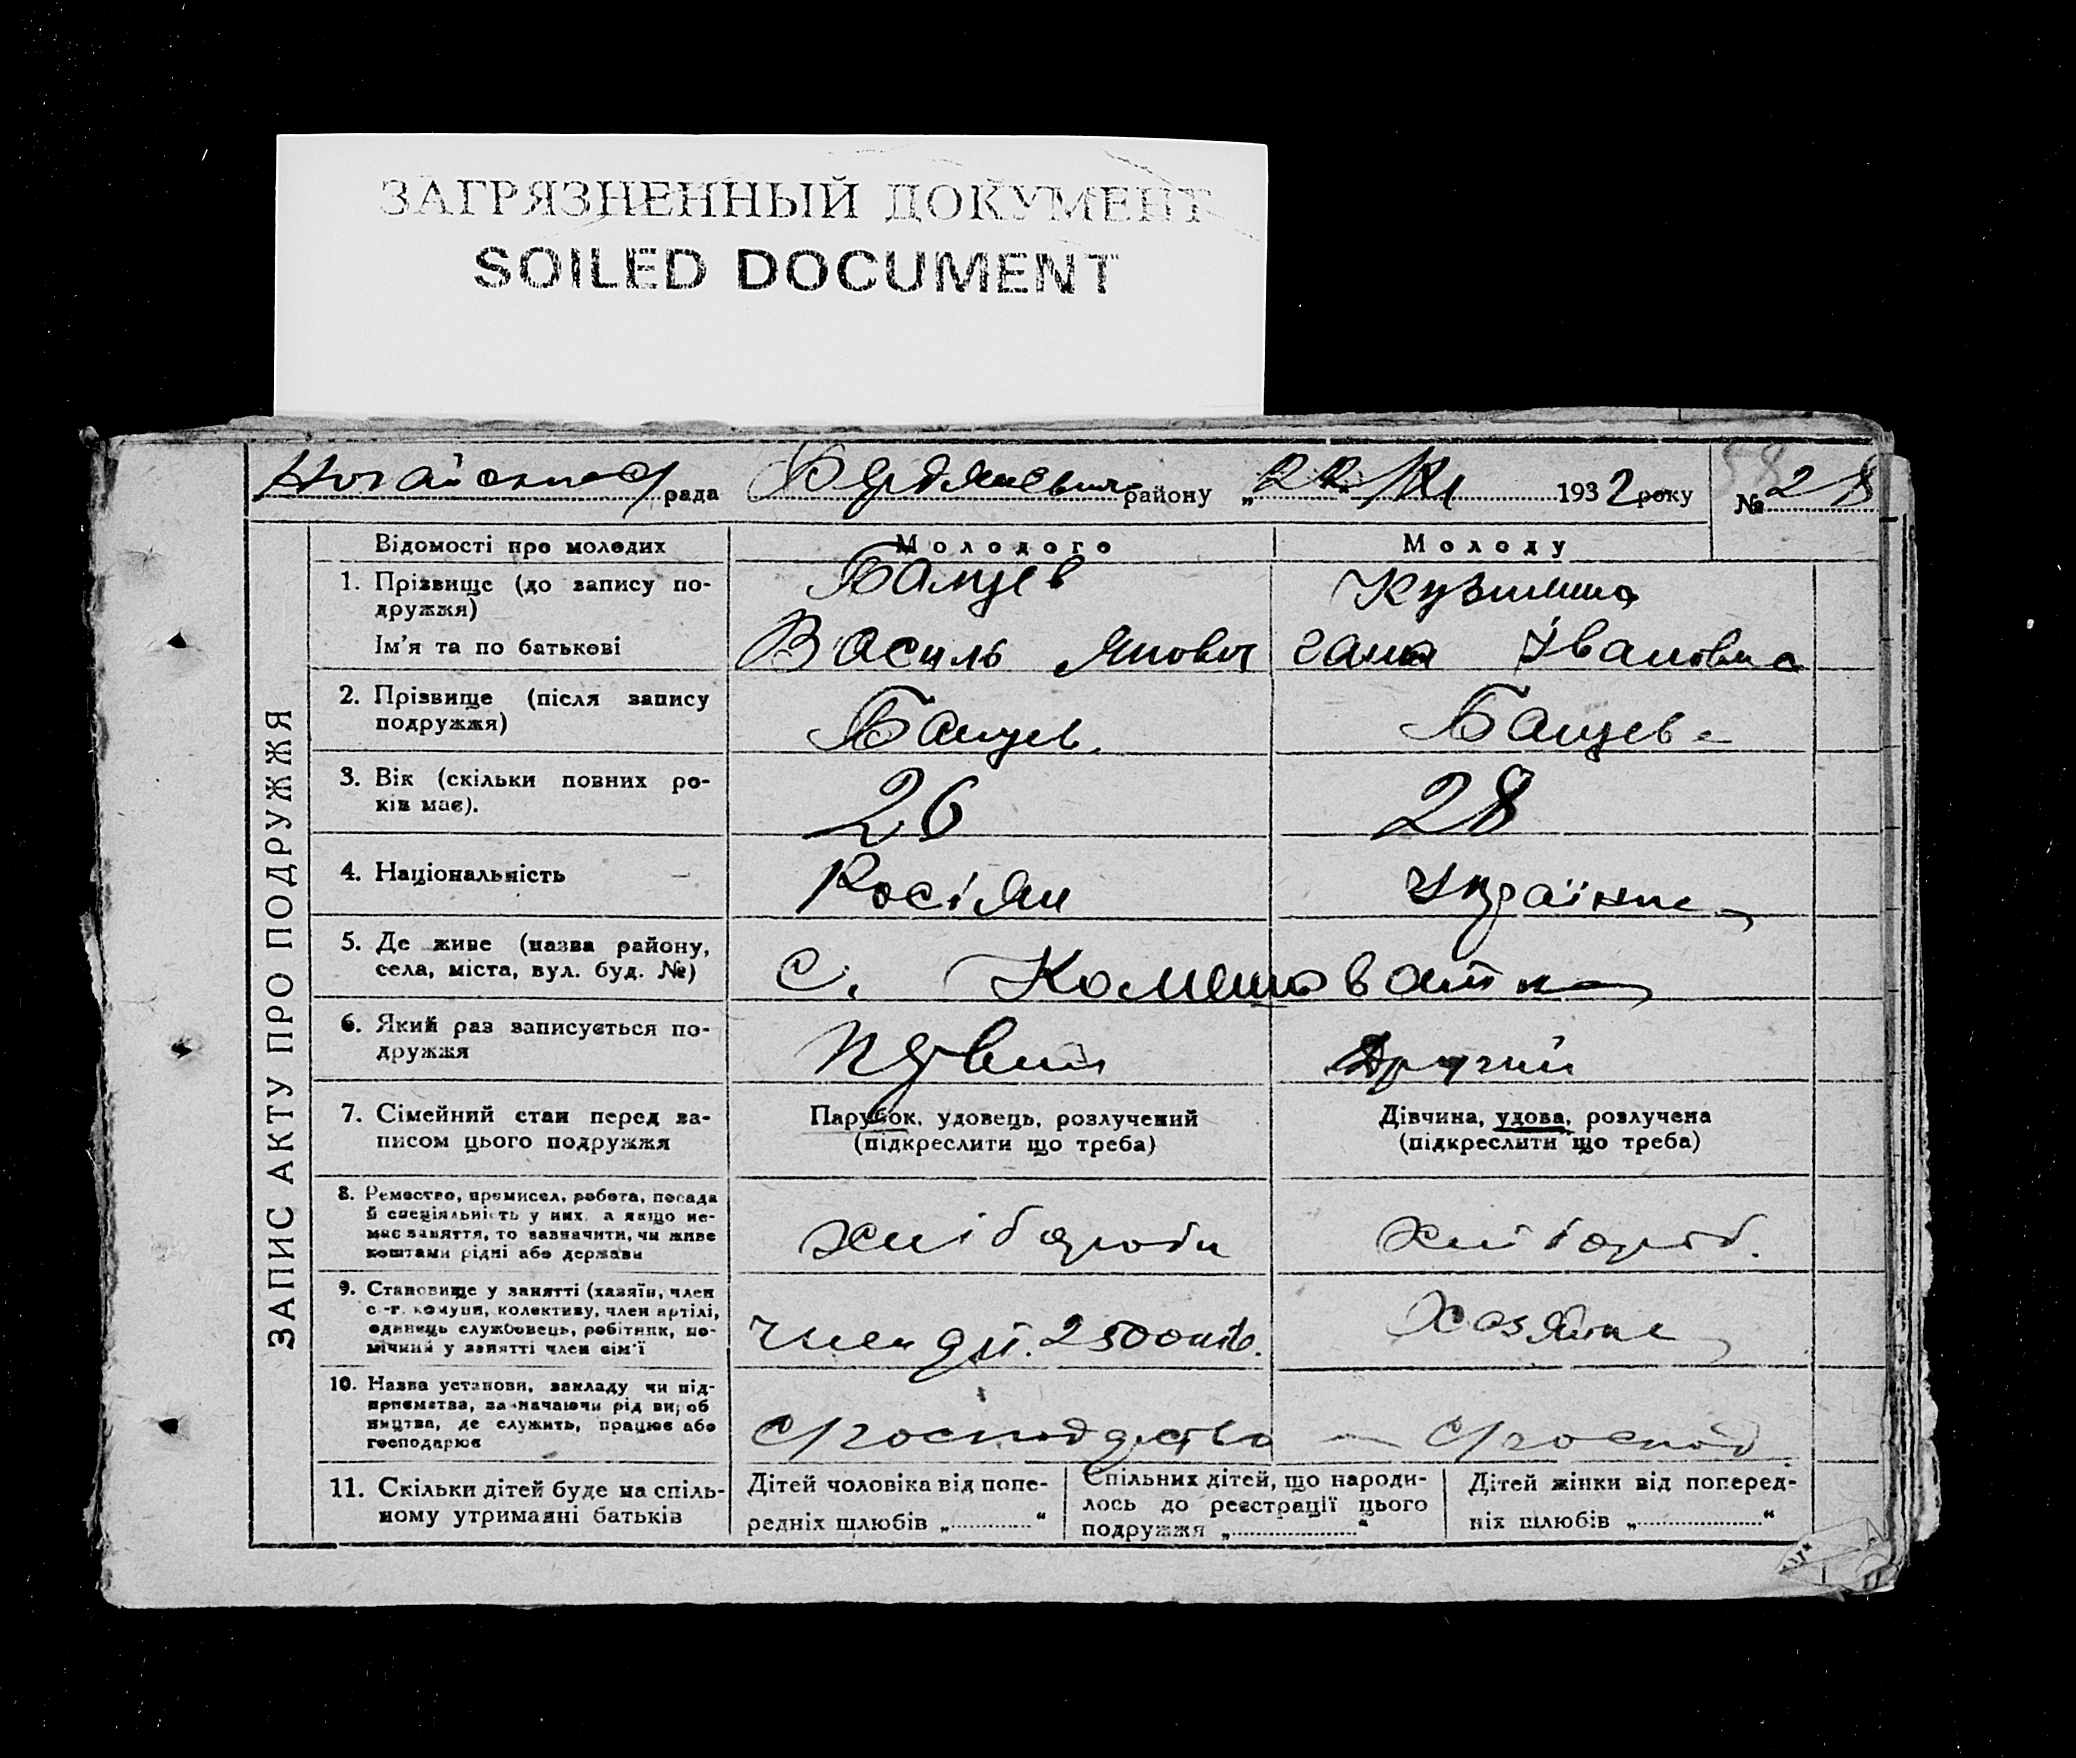 ЗАГРЯЗНЕННЫЙ ДОКУМЕНТ
SOILED DOCUMENT
рада района „22“ XI 1932 року № 28
ЗАПИС АКТУ ПРО ПОДРУЖЖЯ
Відомості про молодих Молодого Молоду
1. Прізвище (до запису подружжя) Банцев
Ім'я та по батькові Василь Івановна
2. Прізвище (після запису
подружжя) Банцев Банцев
3. Вік (скільки повних ро-
ків має). 26 28
4. Національність Росіян Українк
5. Де живе (назва району,
села, міста, вул. буд. №) с.
6. Який раз записується по-
дружжя Первий Другий
7. Сімейний стан перед за-
писом цього подружжя
Парубок, удовець, розлучений
(підкреслити що треба)
Дівчина, удова, розлучена
(підкреслити що треба)
8. Ремество, промисел, робота, посада
й спеціяльність у них, а якщо не-
має заняття, то зазначити, чи живе
коштами рідні або держави
хліборобн хлібороб.
9. Становище у занятті (хазяїн, член
с.-г. комуни, колективу, член артілі,
одинець службовець, робітник, по-
мічний у занятті член сім'ї
член
10. Назва установи, закладу чи під-
приємства, зазначаючи рід вироб
ництва, де служить, працює або
господарює
11. Скільки дітей буде на спіль-
ному утриманні батьків
Дітей чоловіка від попе-
редніх шлюбів „ “
Спільних дітей, що народи-
лось до реєстрації цього
подружжя „ “
Дітей жінки від поперед-
ніх шлюбів „ “